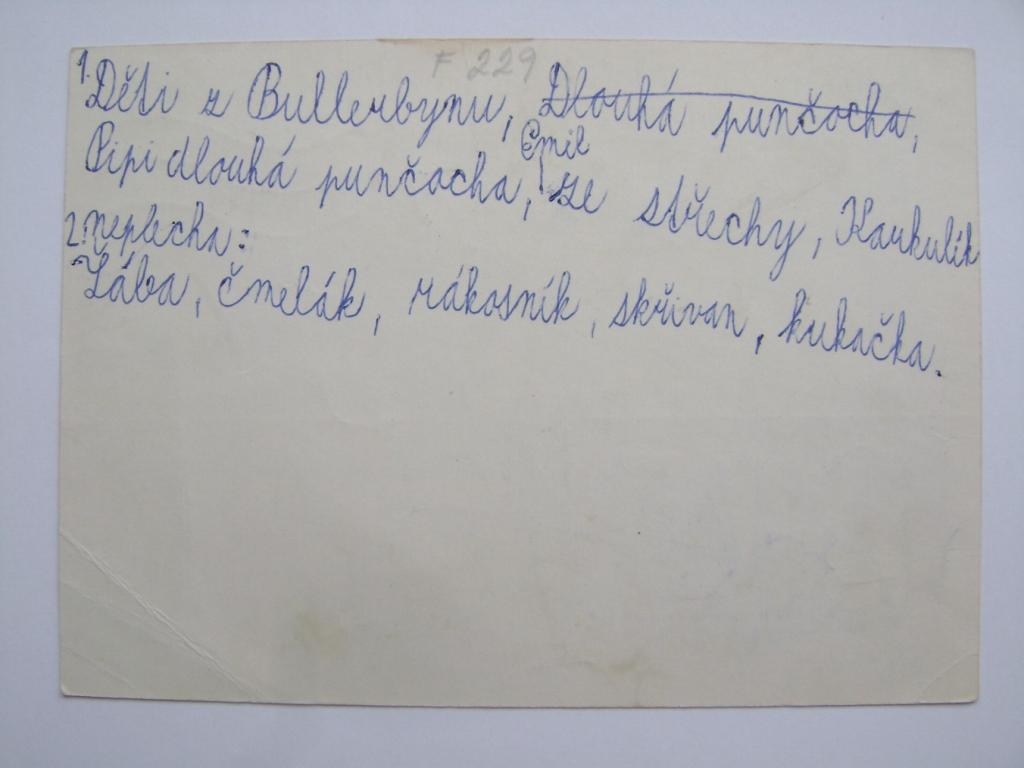 F 229
1. Děti z Bullerbynu, Dlouhá punčocha,
Pipi dlouhá punčocha, Emil ze střechy, Karkulík
2. neplecha:
Žába, čmelák, rákosník, skřivan, kukačka.